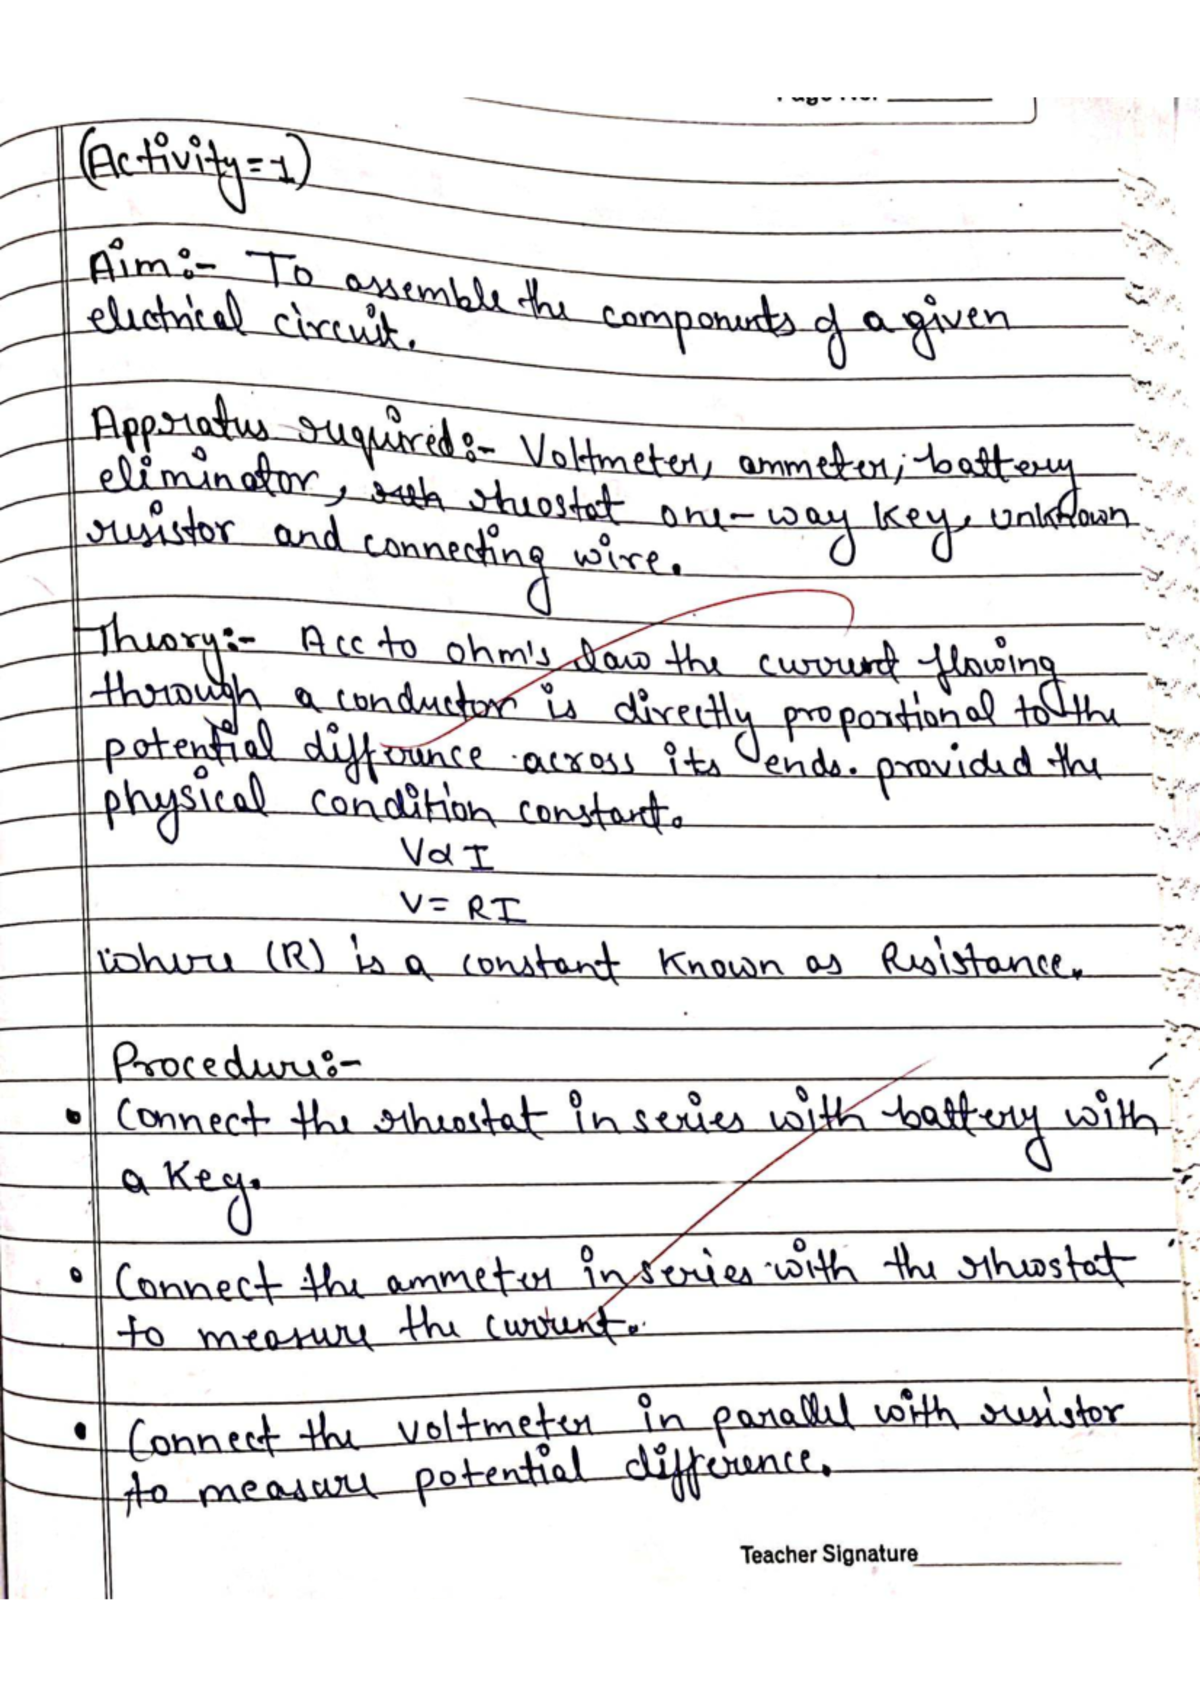 (Activity=1)
Aim:- To assemble the components of a given
electrical circuit.
Appratus required:- Voltmeter, ammeter, battery
eliminator, rheostat one-way key, unknown
resistor and connecting wire.
Theory:- Acc to ohm's law the current flowing
through a conductor is directly proportional to the
potential difference across its ends. provided the
physical condition constant.
V∝I
V=RI
where (R) is a constant known as Resistance.
Procedure:-
• Connect the rheostat in series with battery with
a key.
• Connect the ammeter in series with the rheostat
to measure the current.
• Connect the voltmeter in parallel with resistor
to measure potential difference.
Teacher Signature